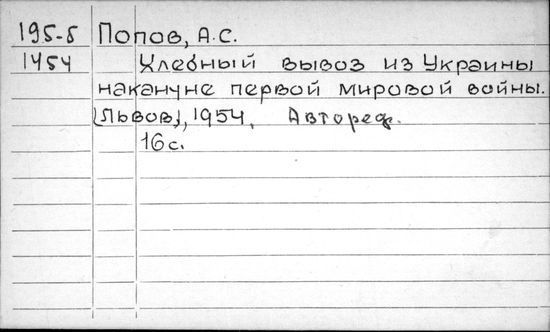 195-5 Попов, А.С.
1454 Хлебный вывоз из Украины
накануне первой мировой войны.
[Львов], 1954. Автореф.
16 с.